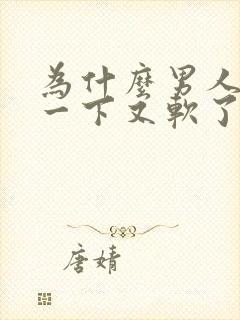 為什麼男人
一下又軟了
唐婧